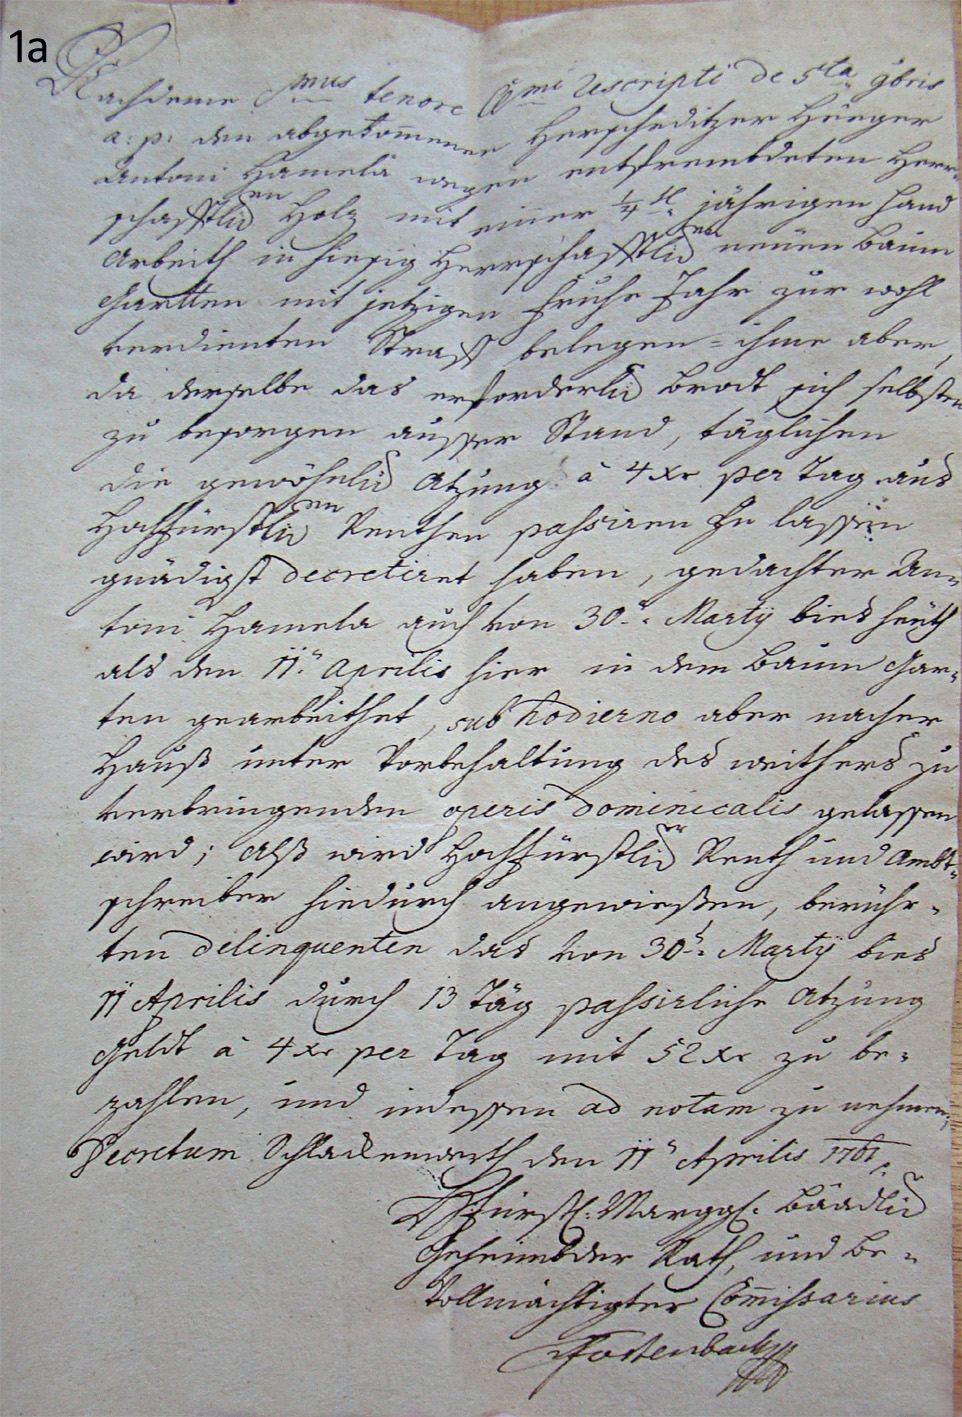 1a
Nachdeme Smus tenore Gmi Rescripti de 5ta 9bris
a: p: den abgekommenen Herscheditzer Heeger
Antoni Hamela wegen entfrembdeten Herr-
schafftlichen Holz mit einer 1/4tl. jährigen Hand
Arbeith in hiesig Herrschafftlichen neuen Baum
Gartten mit jetzigen Fruhe Jahr zur wohl
verdienten Straff belegen = ihme aber,
da derselbe das erforderlich Brodt sich selbsten
zu besorgen ausser Stand, täglichen
die gewöhnlich Atzung à 4 xr per Tag aus
Hochfürstlichen Renthen passiren zu lassen
gnädigst decretiret haben, gedachter An-
toni Hamela auch von 30. Marty bies heuth
als den 11. Aprilis hier in dem Baum Gar-
ten gearbeithet, sub hodierno aber nacher
Hauß unter Vorbehaltung des weithers zu
verbringenden operis dominicalis gelassen
wird; Alß wird Hochfürstlicher Renth und Ambt-
schreiber hiedurch angewießen, berühr-
ten Delinquenten das von 30. Marty bies
11 Aprilis durch 13 Täg passirliche Atzung
Geldt à 4 xr per Tag mit 52 xr zu be-
zahlen, und indessen ad notam zu nehmen;
Decretum Schlackenwerth den 11 Aprilis 1761.
Hfürstl: Marggl: Baadlich
Geheimbder Rath, und be-
Vollmächtigter Com̄issarius